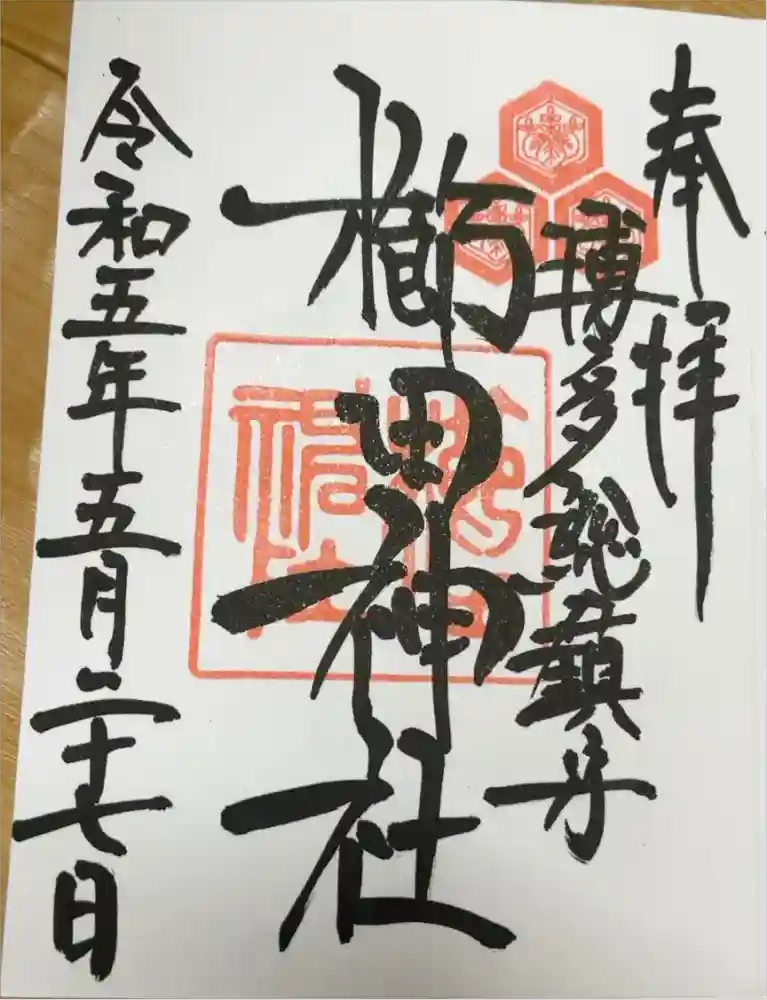 奉拝
博多総鎮守
櫛田神社
櫛田
神社
令和五年五月二十七日